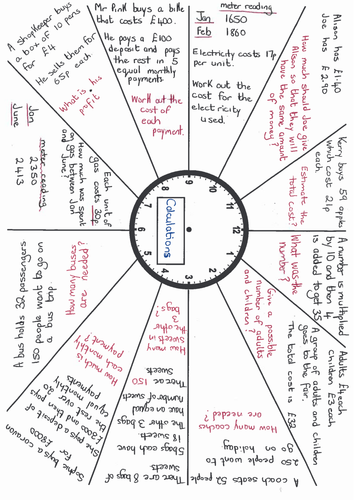 A shopkeeper buys
a box of 10 pens
for £4
He sells them for
65p each
What is his
profit?
Mr Pink buys a bike
that costs £400.
He pays a £100
deposit and pays
the rest in 5
equal monthly
payments.
Work out the
cost of
each
payment.
meter reading
Jan 1650
Feb 1860
Electricity costs 17p
per unit.
Work out the
cost for the
electricity
used.
Alison has £1.40
Joe has £2.90
How much should Joe give
Alison so that they will
have the same amount
of money?
Kerry buys 59 apples
which cost 21p
each.
Estimate the
total cost?
A number is multiplied
by 10 and then 4
is added to get 35
What was the
number?
Adults £4 each
Children £3 each
A group of adults and children
goes to the fair.
The total cost is £32
Give a possible
number of adults
and children?
A coach seats 52 people
250 people want to
go on holiday.
How many coaches
are needed?
There are 8 bags of
sweets
5 bags each have
18 sweets.
The other 3 bags
have an equal
number of sweets
There are 150
How many
sweets in
the other
3 bags?
Sophie buys a caravan
for £8000
She pays a deposit of
£2000 and then pays
the rest in 20
equal monthly
payments
How much is
each monthly
payment?
A bus holds 32 passengers
150 people want to go on
a bus trip
How many buses
are needed?
meter reading
Jan 2350
June 2413
Each unit of
gas costs 30p
How much was spent
on gas between Jan
and June?
Calculations
12
1
2
3
4
5
6
7
8
9
10
11